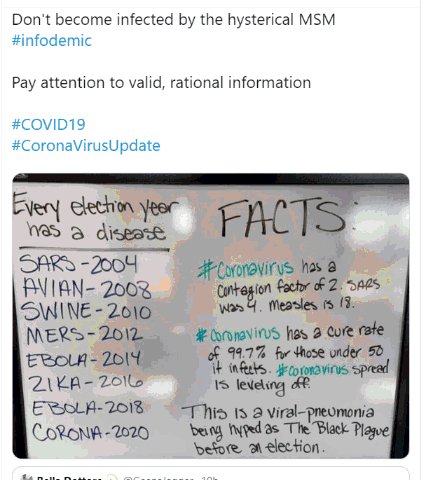 Don't become infected by the hysterical MSM
#infodemic
Pay attention to valid, rational information
#COVID19
#CoronaVirusUpdate
Every election year
has a disease
SARS-2004
AVIAN-2008
SWINE-2010
MERS-2012
EBOLA-2014
ZIKA-2016
EBOLA-2018
CORONA-2020
FACTS:
#Coronavirus has a
Contagion factor of 2. SARS
was 4. Measles is 18.
#Coronavirus has a cure rate
of 99.7% for those under 50
it infects. #Coronavirus spread
is leveling off.
This is a viral-pneumonia
being hyped as The Black Plague
before an election.